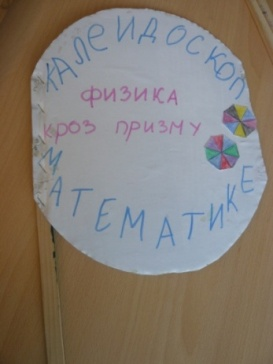 КАЛЕИДОСКОП
ФИЗИКА
КРОЗ ПРИЗМУ
МАТЕМАТИКЕ